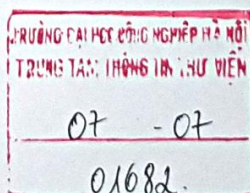 TRƯỜNG ĐẠI HỌC CÔNG NGHIỆP HÀ NỘI
TRUNG TÂM THÔNG TIN THƯ VIỆN
07 - 07
01682